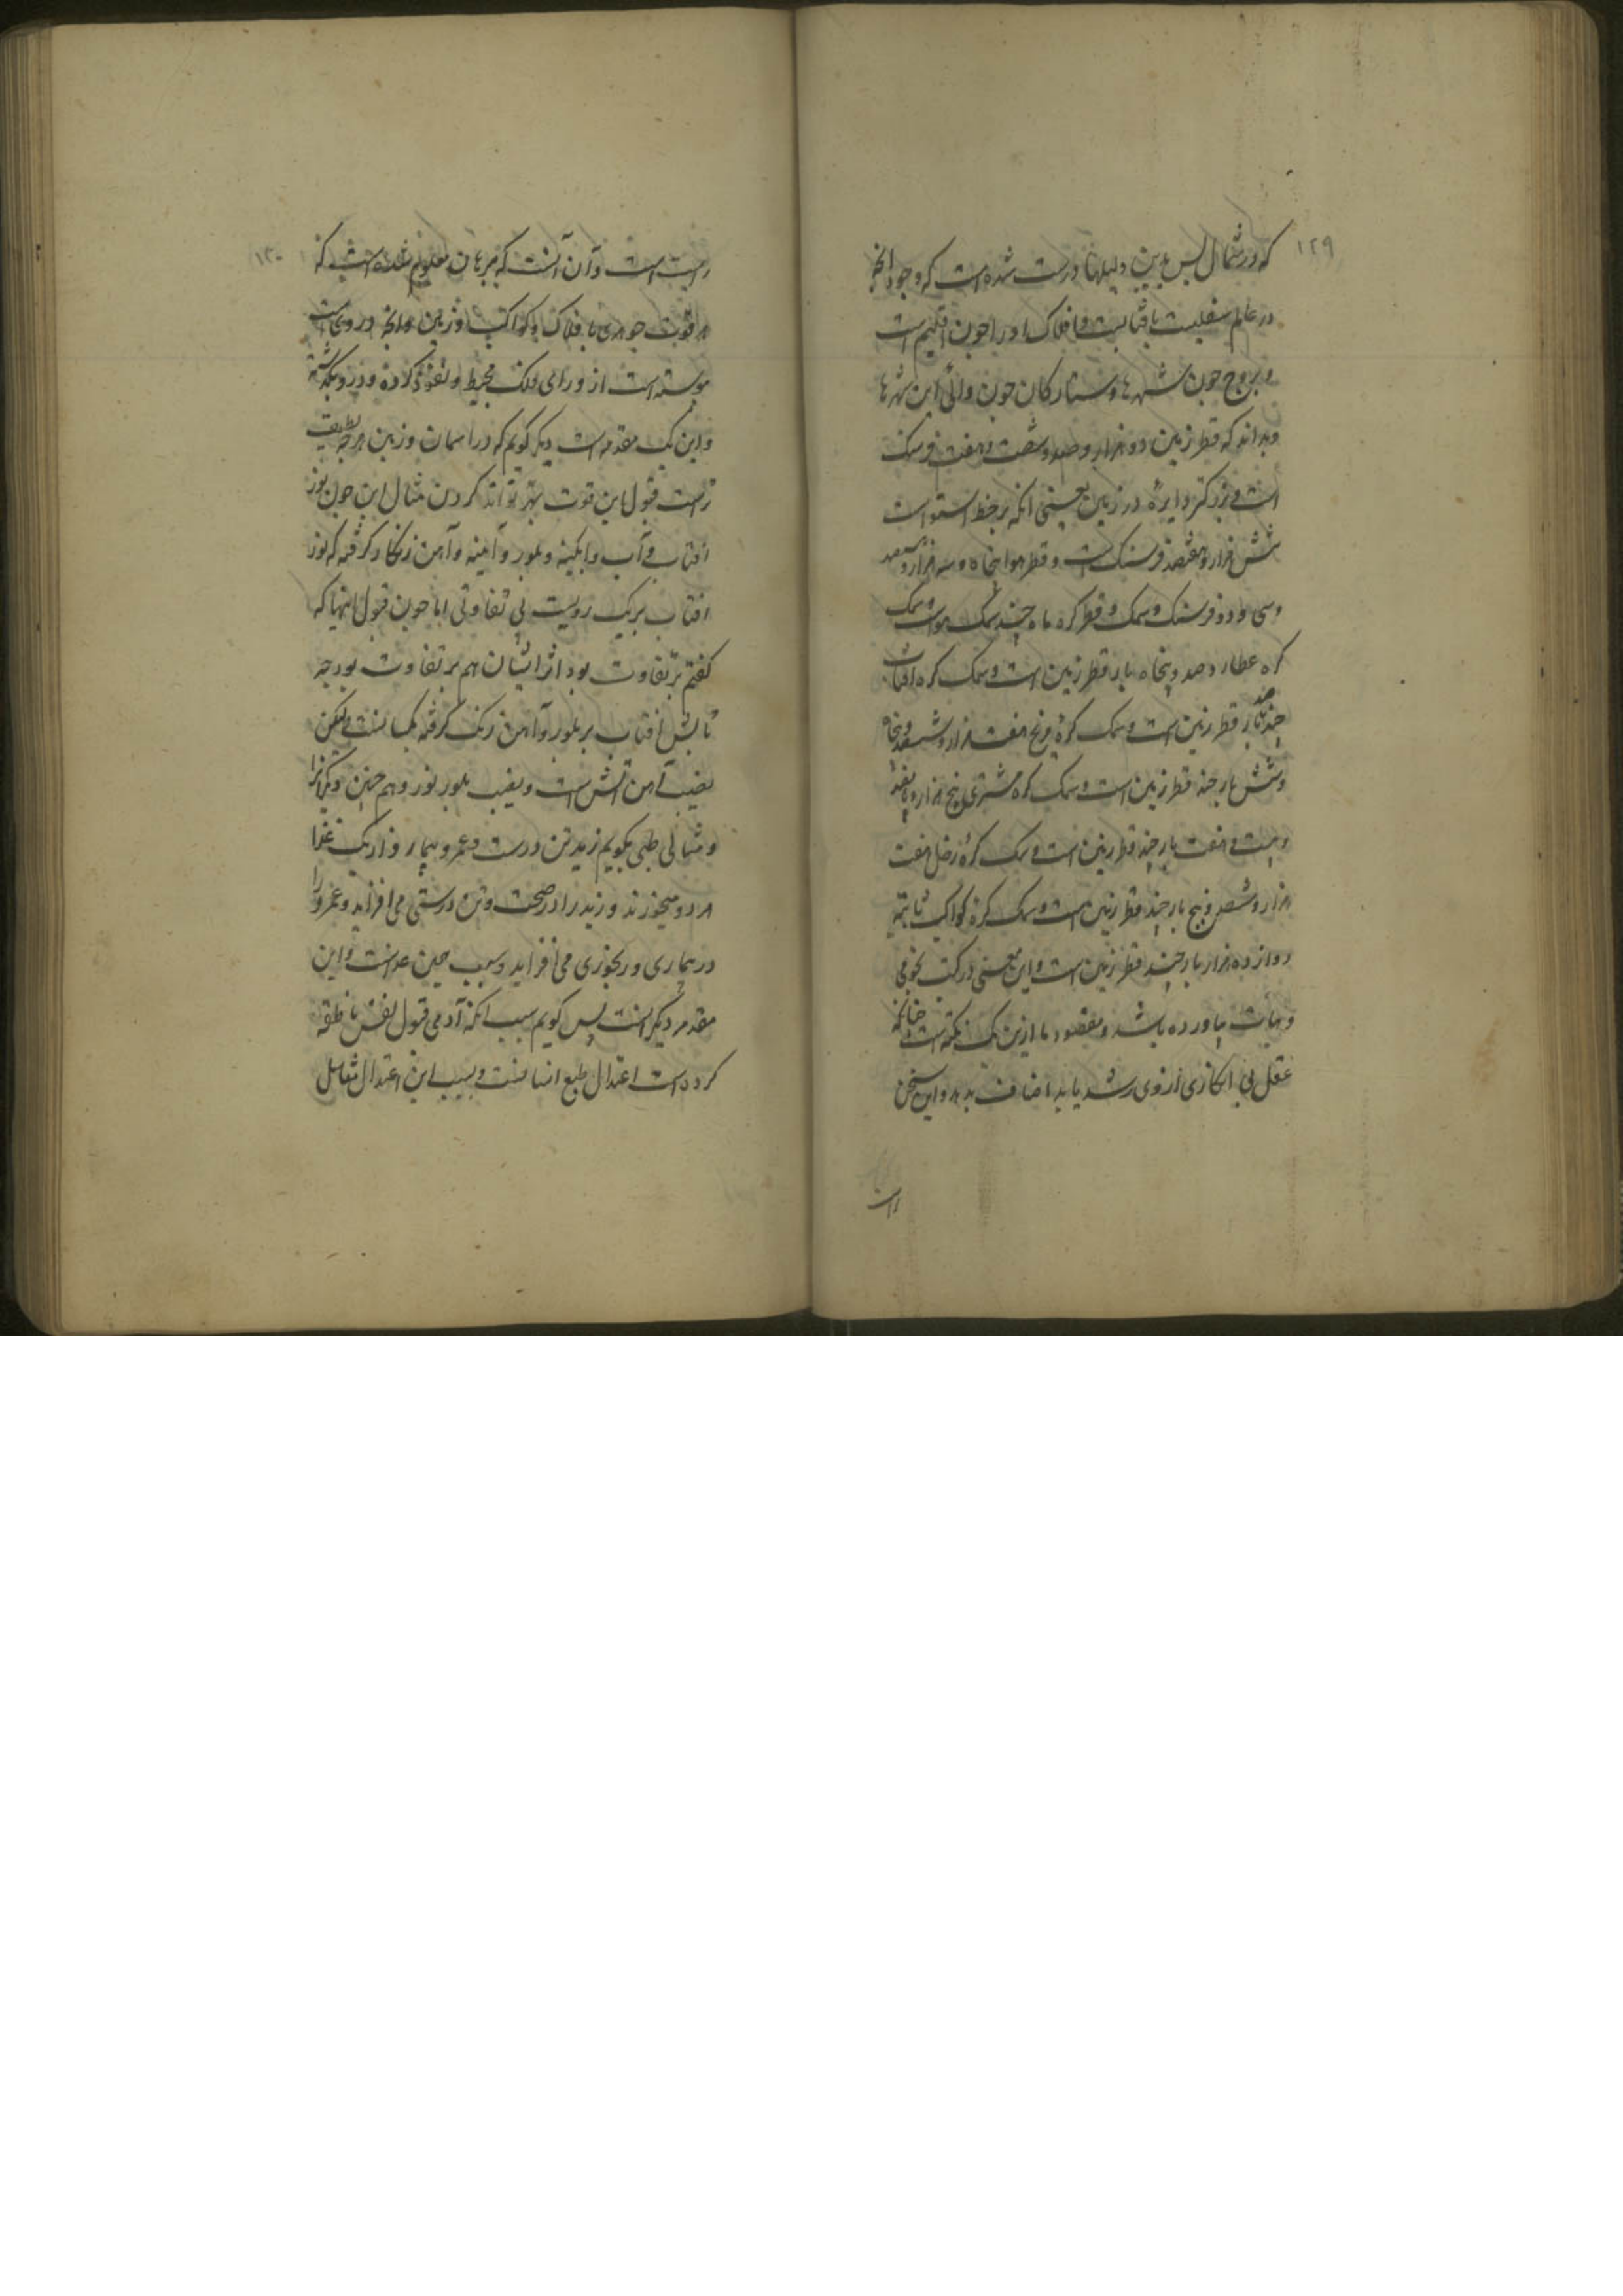 ۱۲۹
که در شمال پس بدین دلیلها درست شده است که وجود انچه
در عالم سفلیست بافتابست و افلاک او را چون اقلیم است
و بروج چون شهرها و ستارکان چون والی این شهرها
و بداند که قطر زمین دو هزار و صد و شصت و هفت فرسنک
است و بزرکتر دایره در زمین یعنی انکه بر خط استواست
شش هزار و هفتصد فرسنک است و قطر هوا پنجاه و سه هزار و
وسی و دو فرسنک و سمک و قطر کره ماه چند سمک هواست و سمک
کره عطارد صد و پنجاه بار قطر زمین است و سمک کره افتاب
چند بار قطر زمین است و سمک کره مریخ هفت هزار و ششصد و پنجاه
و شش بار چند قطر زمین است و سمک کره مشتری پنج هزار و پانصد
و بیست و هفت بار چند قطر زمین است و سمک کره زحل هفت
هزار و ششصد و پنج بار چند قطر زمین است و سمک کره کواکب ثابته
دوازده هزار بار چند قطر زمین است و این معنی در کتب نجومی
و هیات بیاورده باشد و مقصود ما ازین یک نکته است چنانکه
عقل بی انکاری ازوی رشد یابد انصاف بدهد و این سخن
راست
۱۳۰
راست است و آن آنست که ببرهان معلوم شده است که
هر قوت جوهری با فلاک و کواکب و زمین و انچه در وی است
پیوسته است از ورای فلک محیط و نفوذ کرده و درو بکذشته
و این یک مقدمه است دیکر کویم که در اسمان و زمین هرچه لطیف
ترست قبول این قوت بهتر تواند کردن مثال این چون نور
افتاب و آب و ابکینه و بلور و آینه و آهن زنکار کرفته که نور
افتاب بر یک رویست بی تفاوتی اما چون قبول اینها که
کفتم بر تفاوت بود اثر ایشان هم بر تفاوت بود چه
تابش افتاب بر بلور و آهن زنک کرفته یکسانست ولیکن
نصیب آهن تابش است و نصیب بلور نور و هم چنین دیکرانرا
و مثالی طبی بکویم زید تن درست و عمرو بیمار و از یک غذا
هر دو میخورند و زید را در صحت و تن درستی می افزاید و عمرو را
در بیماری و رنجوری می افزاید و سبب همین غذاست و این
مقدمه دیکر است پس کویم سبب انکه آدمی قبول نفس ناطقه
کرده است اعتدال طبع انسانست و بسبب این اعتدال